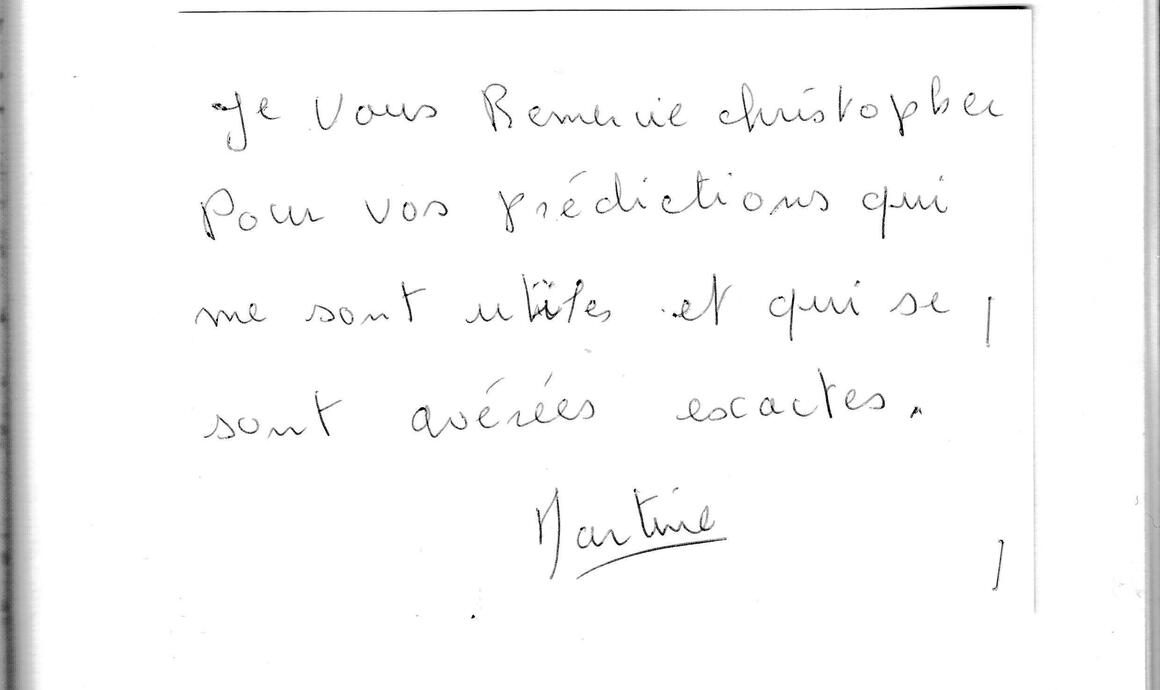 Je Vous Remercie christopher
Pour vos prédictions qui
me sont utiles et qui se
sont avérées exactes.
Martine